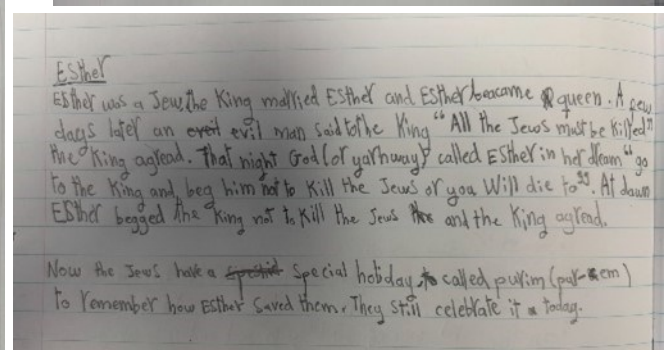 Esther
Esther was a Jew, the King married Esther and Esther beacame queen. A few
days later an evil man said to the King "All the Jews must be killed"
the King agread. That night God (or yarhway) called Esther in her dream "go
to the King and beg him not to kill the Jews or you will die to". At dawn
Esther begged the King not to kill the Jews and the King agread.
Now the Jews have a special holiday called purim (pur-em)
to remember how Esther saved them. They still celebrate it today.